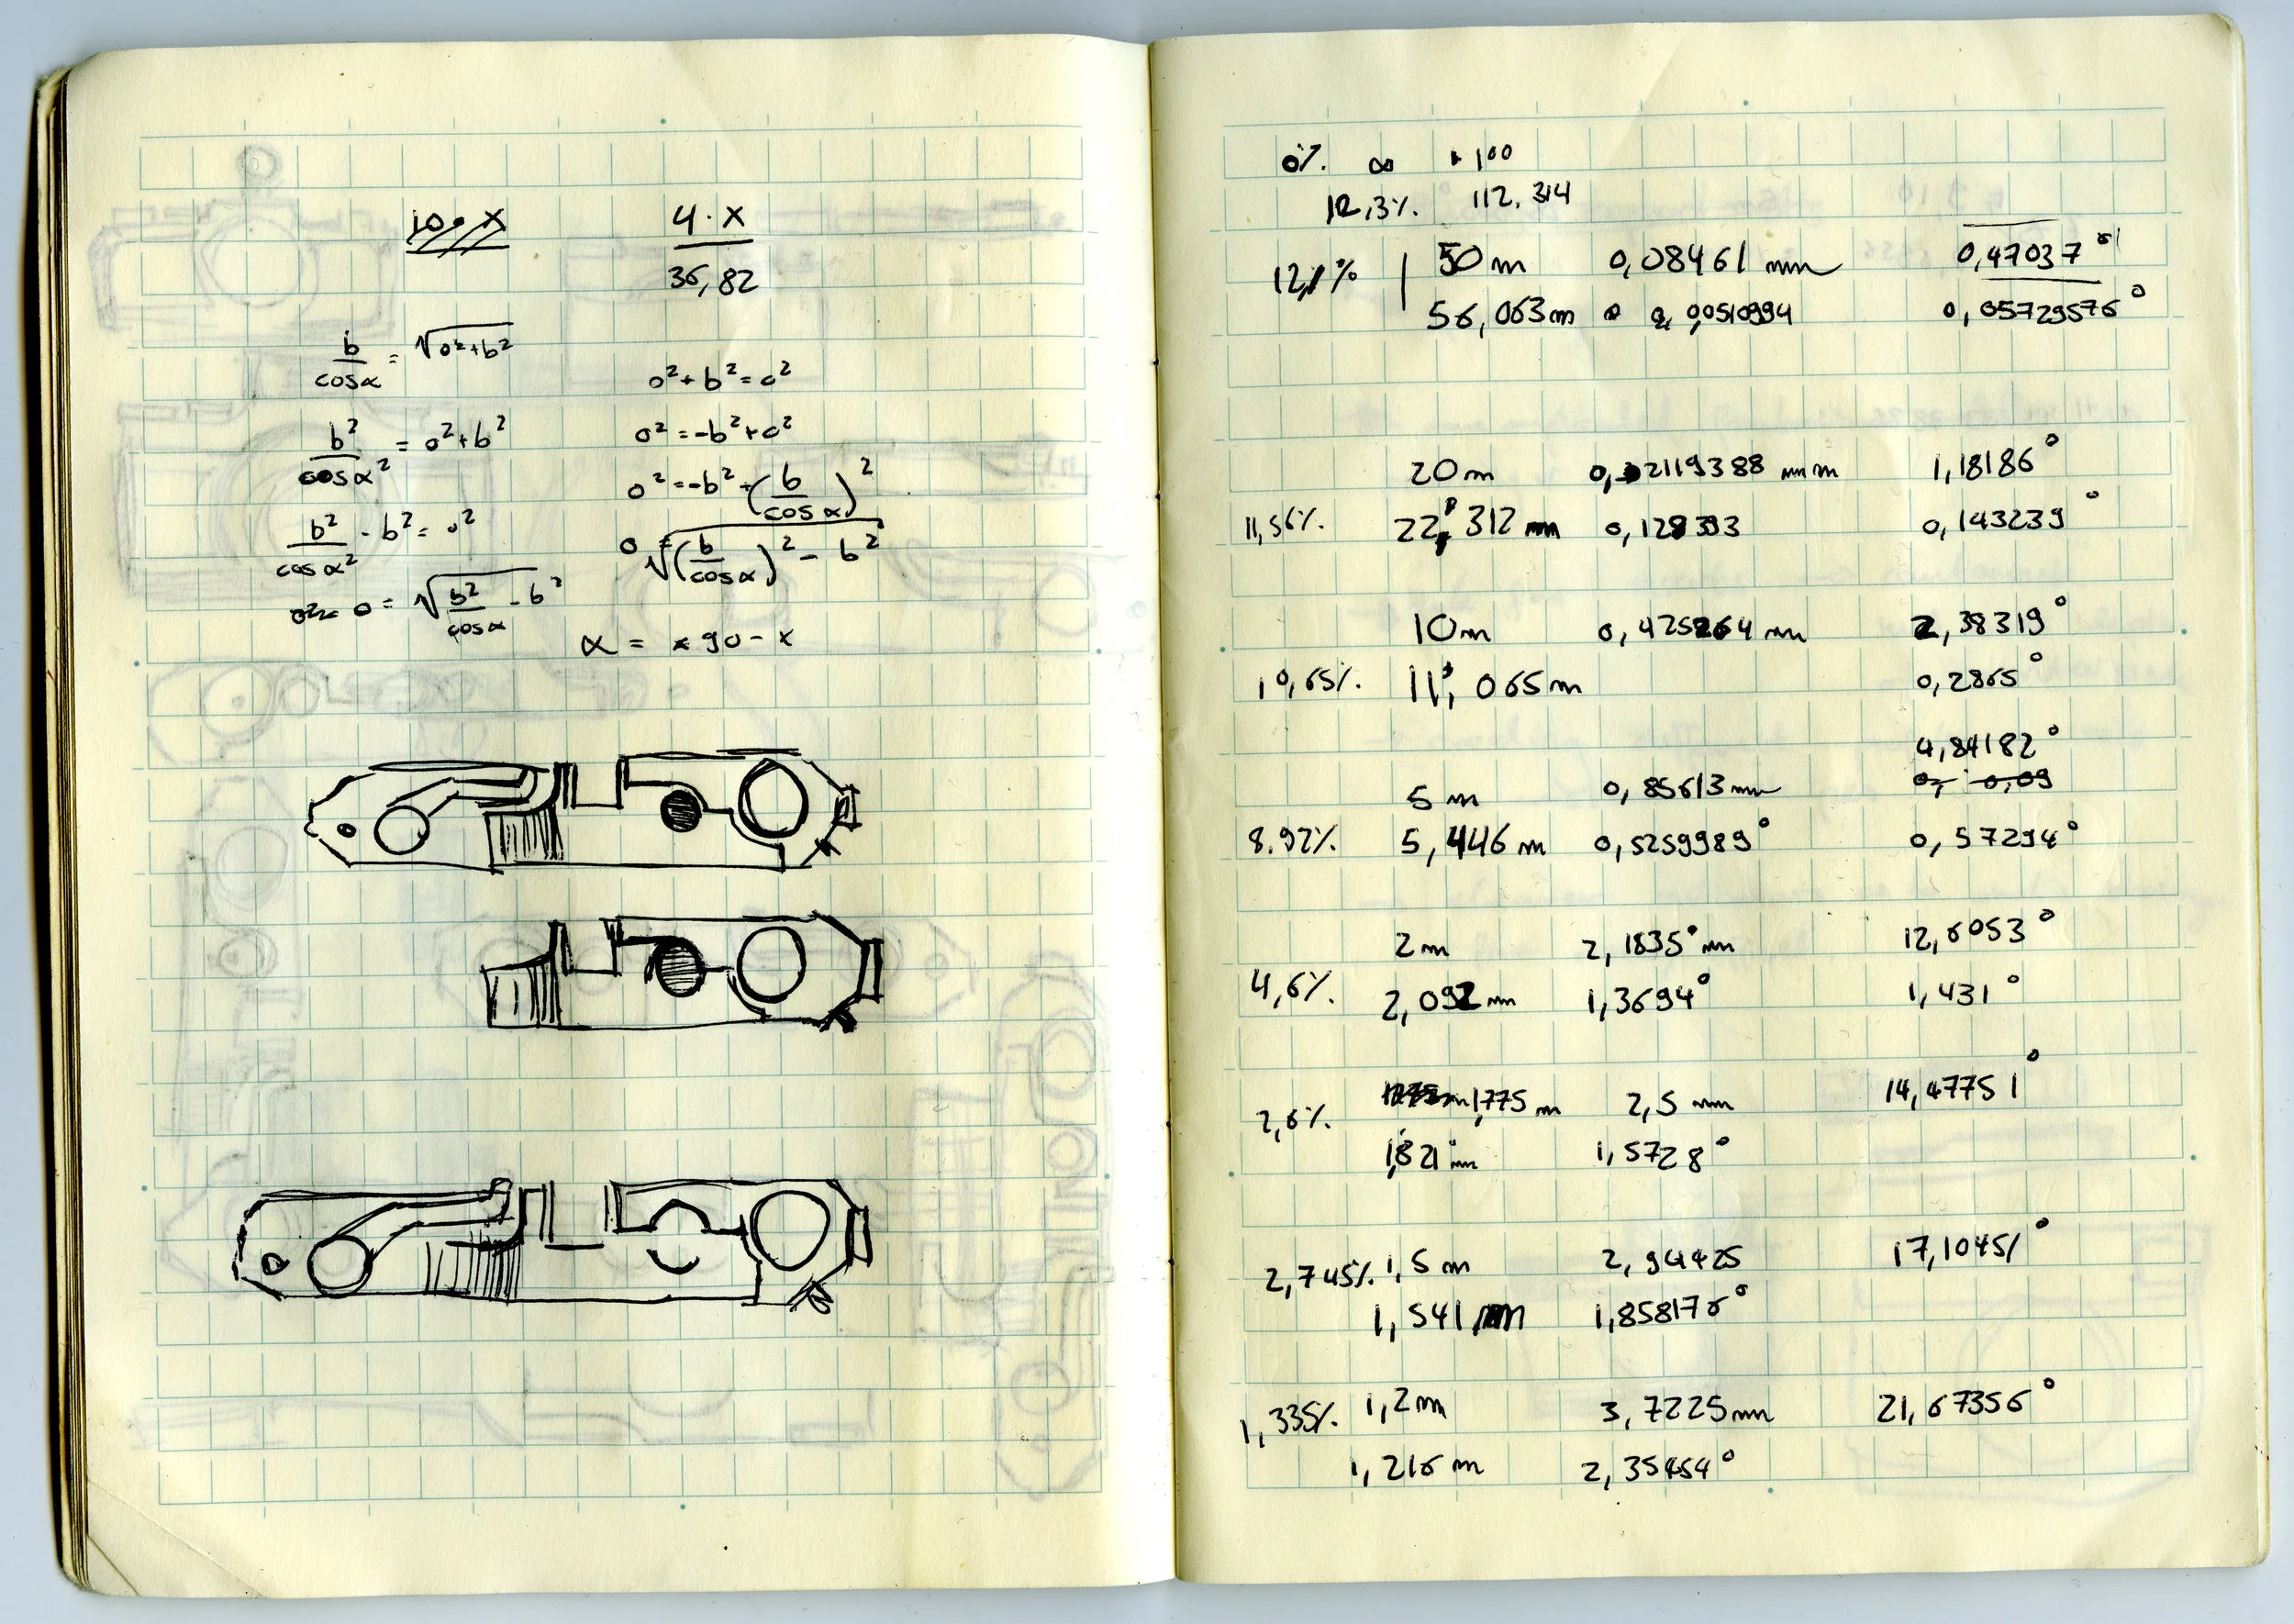 4 · x
36,82
b/cosα = √o²+b²
b²/cosα² = o²+b²
b²/cosα² - b² = o²
o = √b²/cosα - b²
o²+b²=c²
o²=-b²+c²
o²=-b²+(b/cosα)²
o=√(b/cosα)² - b²
α = x 90 - x
0% ∞ 100
12,3% 112.314
12,1% 50m 0,08461 mm 0,47037°
56,063m 0,0510994 0,05729576°
20m 0,2119388 mm 1,18186°
11,56% 22,312 m 0,128393 0,143239°
10m 0,425264 mm 2,38319°
10,65% 11,065m 0,2865°
4,84182°
5m 0,85613mm 0,09
8.92% 5,446m 0,5259989° 0,57294°
2m 2,1835 mm 12,6053°
4,6% 2,092m 1,3694° 1,431°
2,6% 1,775m 2,5 mm 14,47751°
1,821m 1,5728°
2,745% 1,5m 2,94425 17,10451°
1,541m 1,858176°
1,335% 1,2m 3,7225mm 21,67356°
1,216m 2,35454°